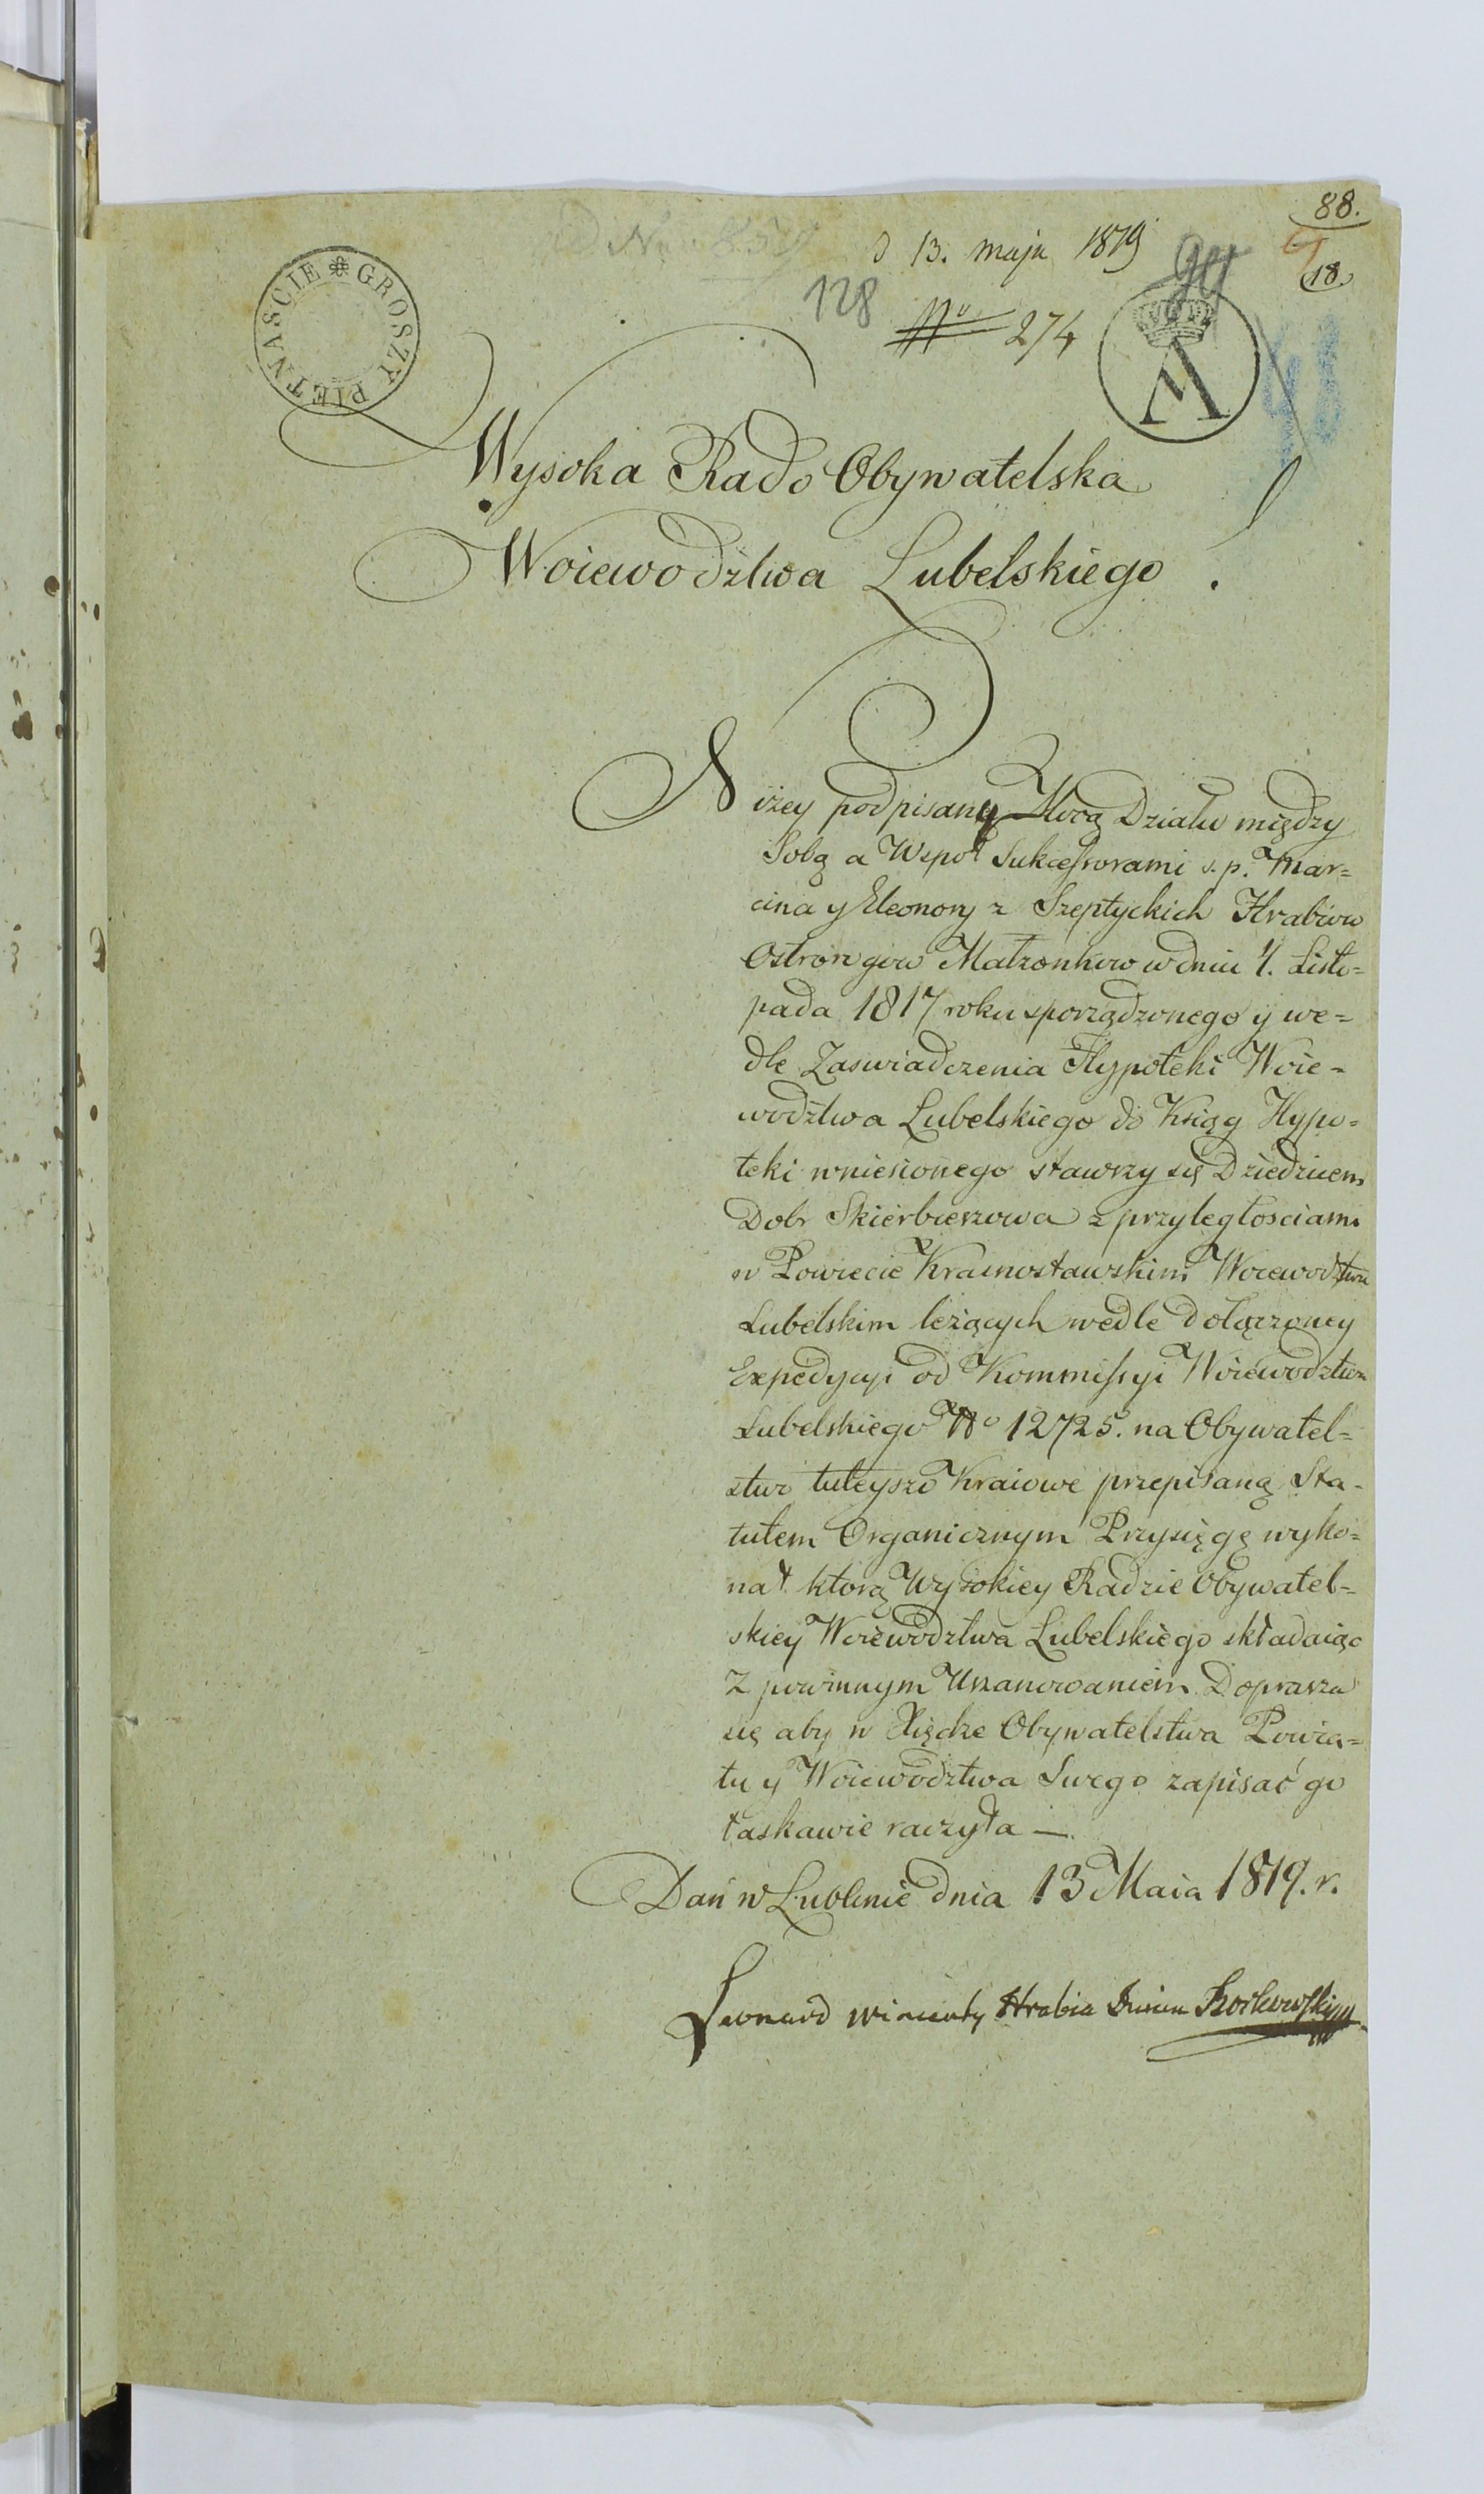 88.
18.
d 13. maja 1819
128
No 274
PIĘTNAŚCIE GROSZY
A
Wysoka Rado Obywatelska
Woiewodztwa Lubelskiego !
Niżey podpisany Mocą Działu między
Sobą a Wspoł Sukcessorami s. p. Mar=
cina y Eleonory z Szeptyckich Hrabiow
Ostrorogow Małżonkow w dniu 4. Listo=
pada 1817 roku sporządzonego y we=
dle Zaswiadczenia Hypoteki Woie=
wodztwa Lubelskiego do Ksiąg Hypo=
teki wniesionego stawszy się Dziedzicem
Dobr Skierbieszowa z przyległosciami
w Powiecie Krasnostawskim Woiewodztwie
Lubelskim leżących wedle Dołączoney
Expedycyi od Kommissyi Woiewodztwa
Lubelskiego No 12725. na Obywatel=
stwo tuteyszo Kraiowe przepisaną Sta=
tutem Organicznym Przysięgę wyko=
nał którą Wysokiey Radzie Obywatel=
skiey Woiewodztwa Lubelskiego składaiąc
z powinnym Uszanowaniem Doprasza
się aby w Xiędze Obywatelstwa Powia=
tu y Woiewodztwa Swego zapisać go
łaskawie raczyła —
Dan w Lublinie dnia 13 Maia 1819. r.
Leonard Wincenty Hrabia Dunin